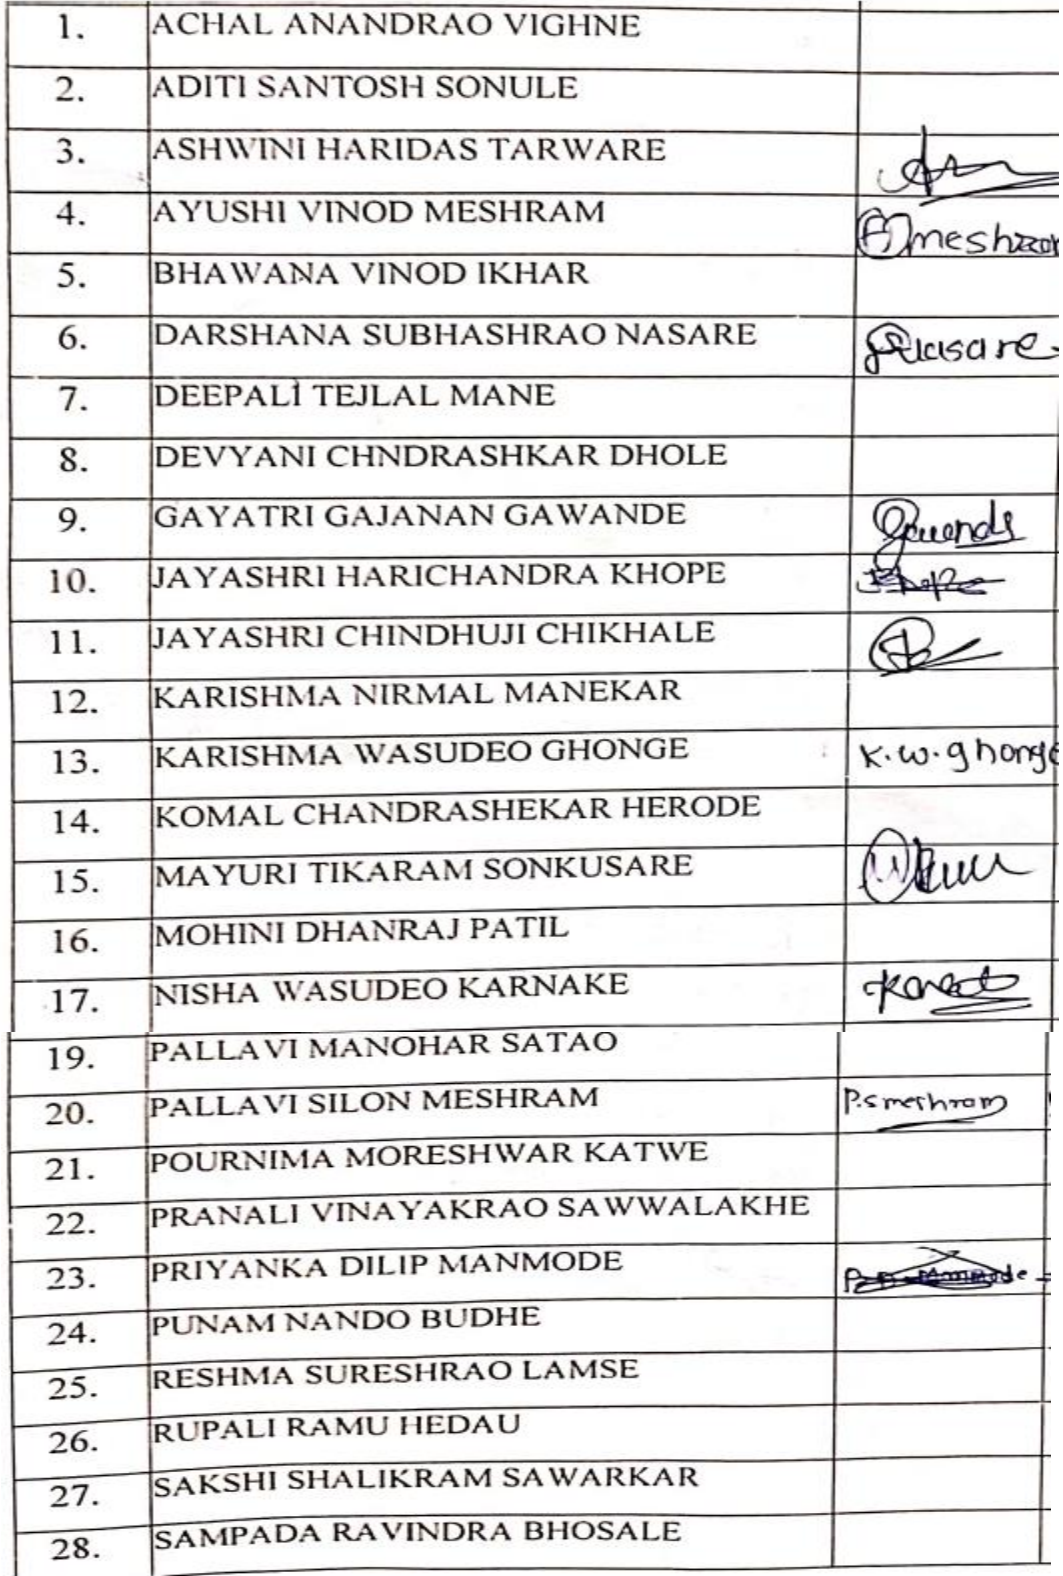 1. ACHAL ANANDRAO VIGHNE
2. ADITI SANTOSH SONULE
3. ASHWINI HARIDAS TARWARE
4. AYUSHI VINOD MESHRAM meshram
5. BHAWANA VINOD IKHAR
6. DARSHANA SUBHASHRAO NASARE Nasare
7. DEEPALI TEJLAL MANE
8. DEVYANI CHNDRASHKAR DHOLE
9. GAYATRI GAJANAN GAWANDE
10. JAYASHRI HARICHANDRA KHOPE
11. JAYASHRI CHINDHUJI CHIKHALE
12. KARISHMA NIRMAL MANEKAR
13. KARISHMA WASUDEO GHONGE K.W.ghonge
14. KOMAL CHANDRASHEKAR HERODE
15. MAYURI TIKARAM SONKUSARE
16. MOHINI DHANRAJ PATIL
17. NISHA WASUDEO KARNAKE
19. PALLAVI MANOHAR SATAO
20. PALLAVI SILON MESHRAM P.S meshram
21. POURNIMA MORESHWAR KATWE
22. PRANALI VINAYAKRAO SAWWALAKHE
23. PRIYANKA DILIP MANMODE
24. PUNAM NANDO BUDHE
25. RESHMA SURESHRAO LAMSE
26. RUPALI RAMU HEDAU
27. SAKSHI SHALIKRAM SAWARKAR
28. SAMPADA RAVINDRA BHOSALE